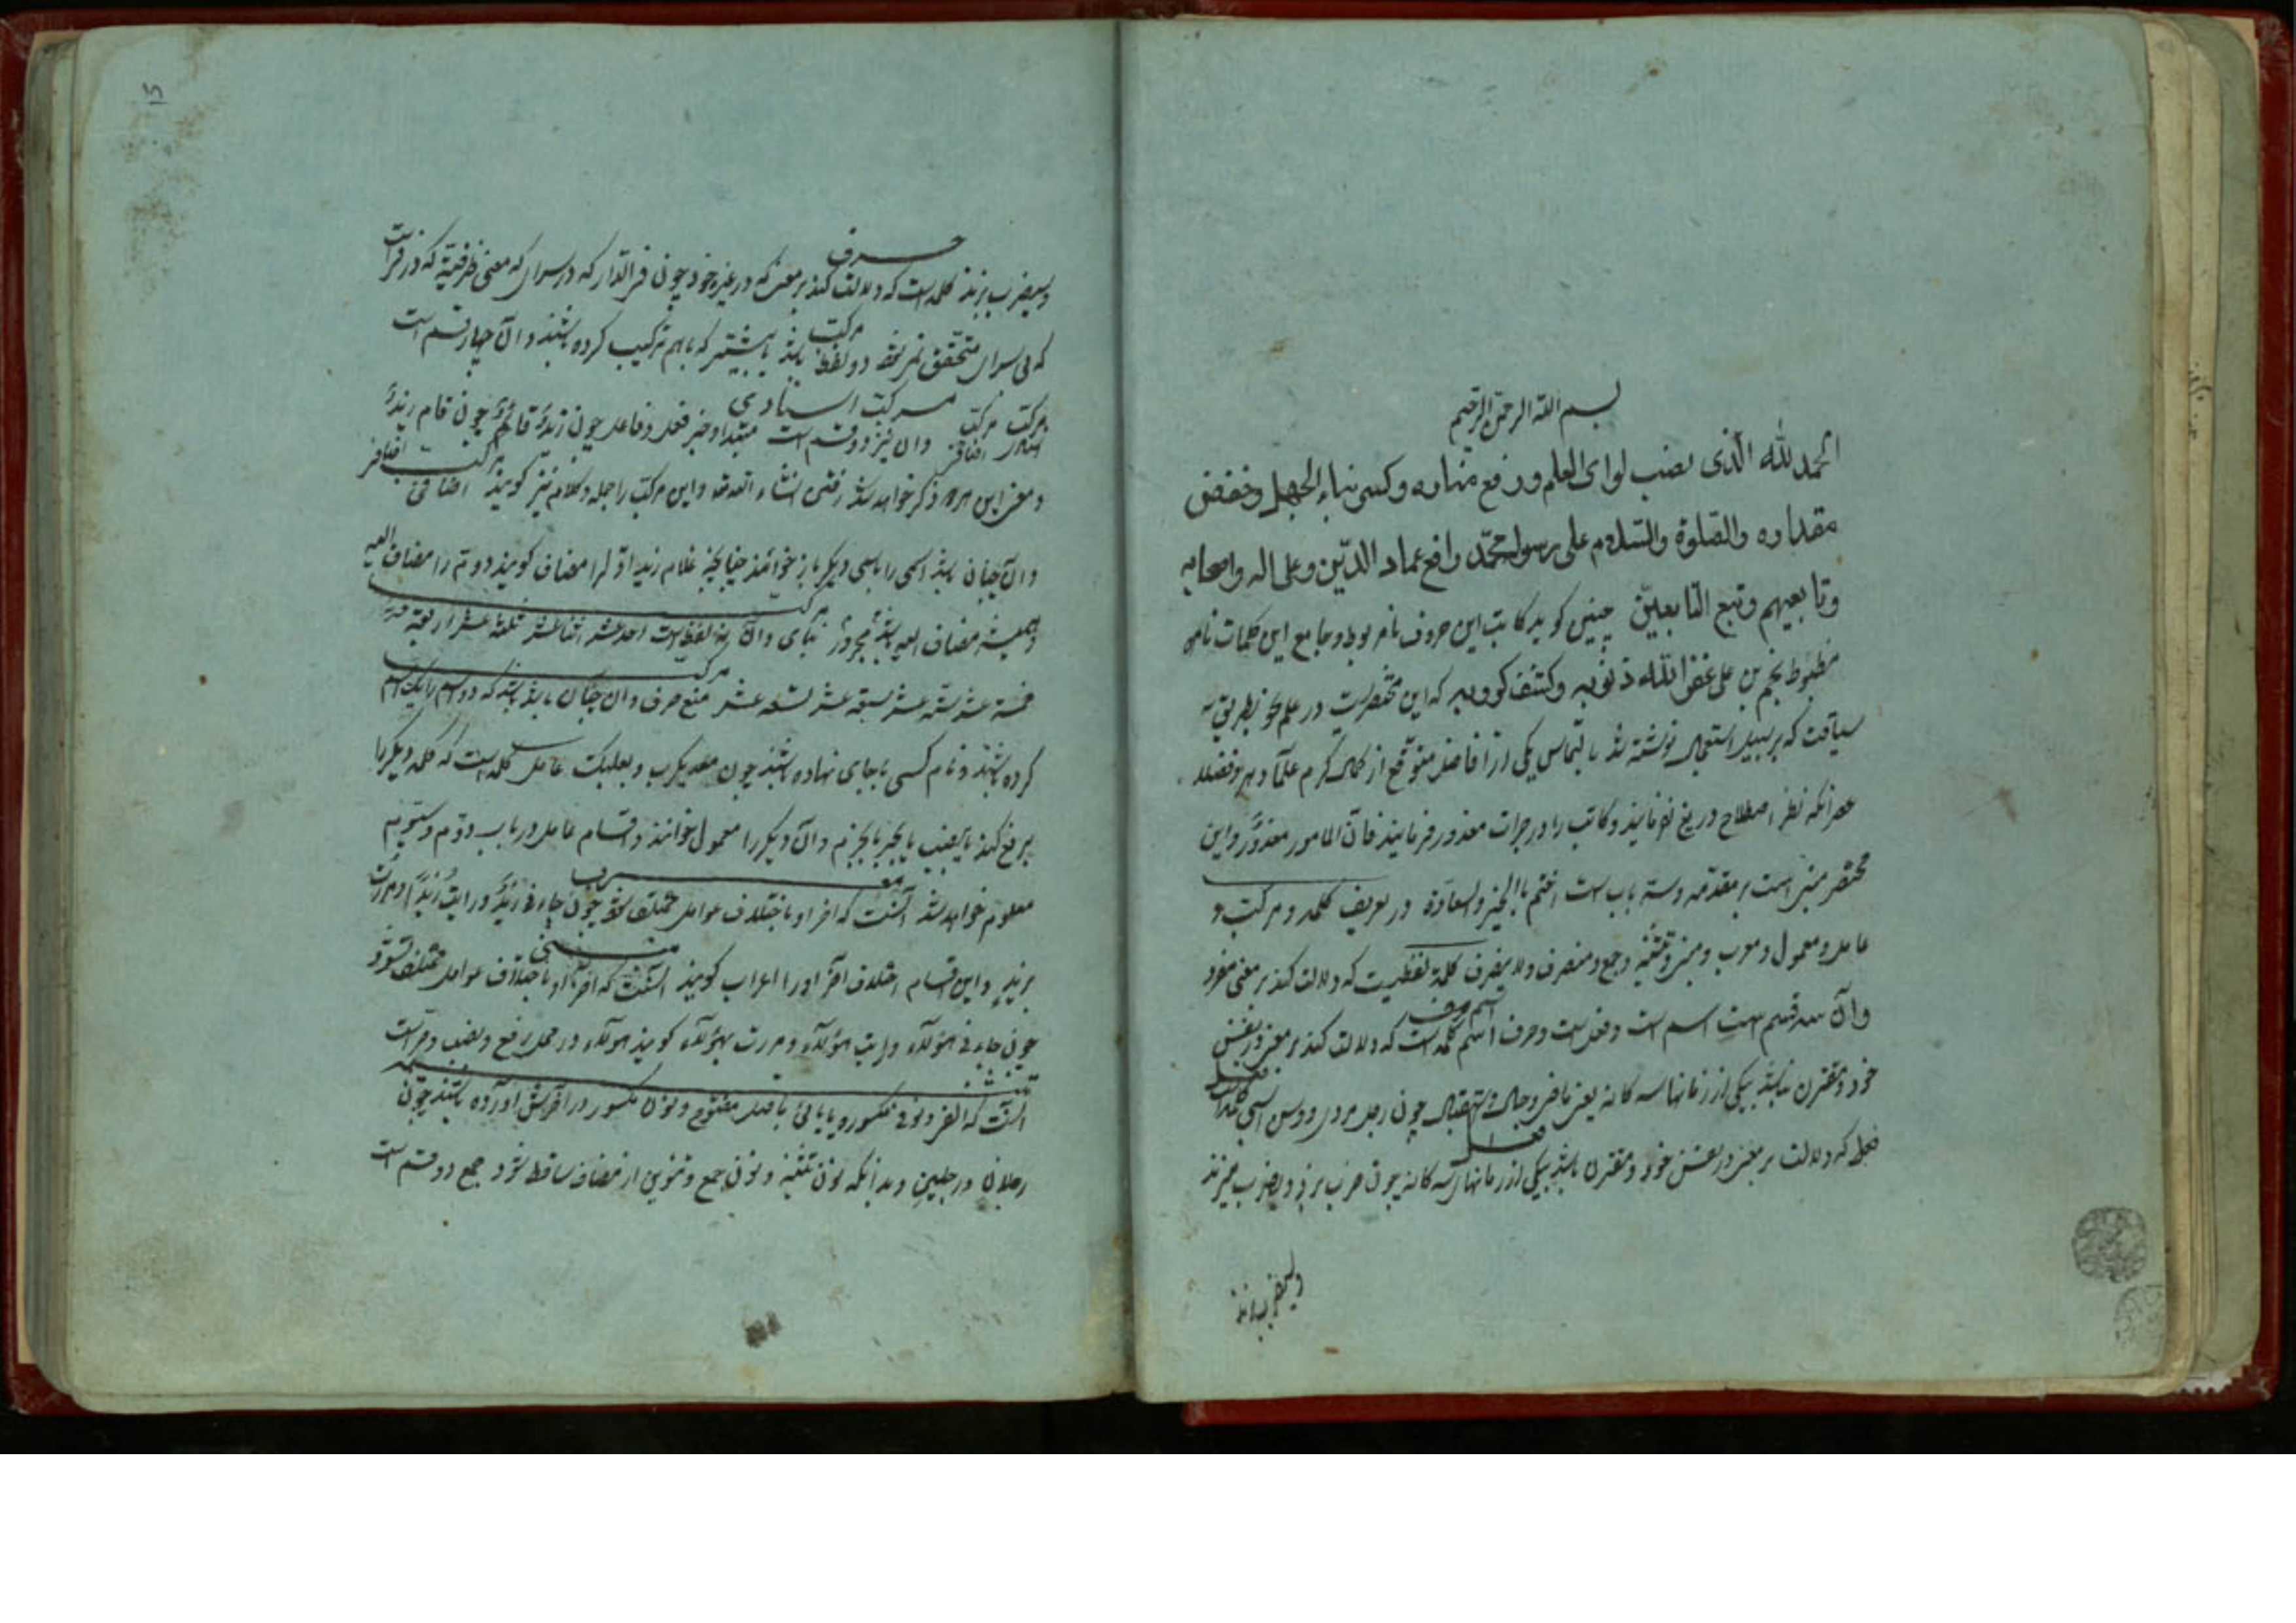 بسم الله الرحمن الرحيم
الحمد لله الذی نصب لوای العلم ورفع مناره وکسر بناء الجهل وخفض
مقداره والصلوة والسلام علی رسوله محمد رافع عماد الدین وعلی اله واصحابه
وتابعیهم وتبع التابعین چنین کوید کاتب این حروف نامربوط وجامع این کلمات نا
مضبوط نجم بن علی غفر الله ذنوبه وکشف کروبه که این مختصریست در علم نحو بطریق
سیاقت که بر سبیل استعجال نوشته شد بالتماس یکی از افاضل متوقع از کمال کرم علما
انکه نظر اصطلاح دریغ نفرمایند وکاتب را در جرات معذور فرمایند فان المامور معذور واین
مختصر مبنی است بر مقدمه وسه باب است اختم بالخیر والسعادة در تعریف کلمه ومرکب و
عامل ومعمول ومعرب ومبنی وتثنیه وجمع ومنصرف ولا ینصرف کلمة لفظیست که دلالت کند بر معنی مفرد
وآن سه قسم است اسم است وفعلست وحرف اسم کلمه است که دلالت کند بر معنی در نفس
خود ومقترن نباشد بیکی از زمانهاء سه کانه یعنی ماضی وحال واستقبال چون رجل مردی
فعل که دلالت بر معنی در نفس خود ومقترن باشد بیکی از زمانهای سه کانه چون ضرب بزد ویضرب میزند
ولیضرب بزند
١٥
حرف
ولیضرب بزند کلمه است که دلالت کند بر معنی که در غیر خود چون فی الدار که در سرای که معنی ظرفیة که در فی است
مرکب
که بی سرای متحقق نمی شود دو لفظ باشد یا بیشتر که باهم ترکیب کرده باشند وآن چهار قسم است
مرکب اسنادی
مرکب مرکب وان نیز دو قسم است مبتدا وخبر فعل وفاعل چون زید قائم چون قام زید
مرکب اضافی
ومعنی این هردو ذکر خواهد شد ان شاء الله تعالی واین مرکب را جمله وکلام نیز کویند اضافی
وآن چنان باشد اسمی را باسمی دیکر باز خوانند چنانچه غلام زید اول را مضاف کویند دوم را مضاف الیه
مرکب
وهمیشه مضاف الیه باشد مجرور بنائی وآن لفظیست احد عشر اثنا عشر ثلثة عشر اربعة عشر
مرکب
خمسة عشر ستة عشر سبعة عشر تسعة عشر منع صرف وان چنان باشد که دو اسم را یک اسم
کرده باشند ونام کسی یا جای نهاده باشند چون معدیکرب وبعلبک عامل کلمه است که کلمه دیکر را
برفع کند یا بنصب یا بجر یا بجزم وآن دیکر را معمول خوانند واقسام عامل در باب دوم وسیوم
معرب
معلوم خواهد شد آنست که اخر او باختلاف عوامل مختلف شود چون جاءنی زید ورایت زیدا ومررت
مبنی
بزید واین اقسام اختلاف آخر او را اعراب کویند آنست که آخر او باختلاف عوامل مختلف نشود
چون جاءنی هؤلاء ورایت هؤلاء ومررت بهؤلاء کویند هؤلاء در محل رفع ونصب وجر است
تثنیه
آنست که الفی ونونی مکسور ویا یائی ماقبل مفتوح ونون مکسور در آخرش در آورده باشند چون
رجلان ورجلین وبدانکه نون تثنیه ونون جمع وتنوین از مضاف ساقط شود جمع دو قسم است